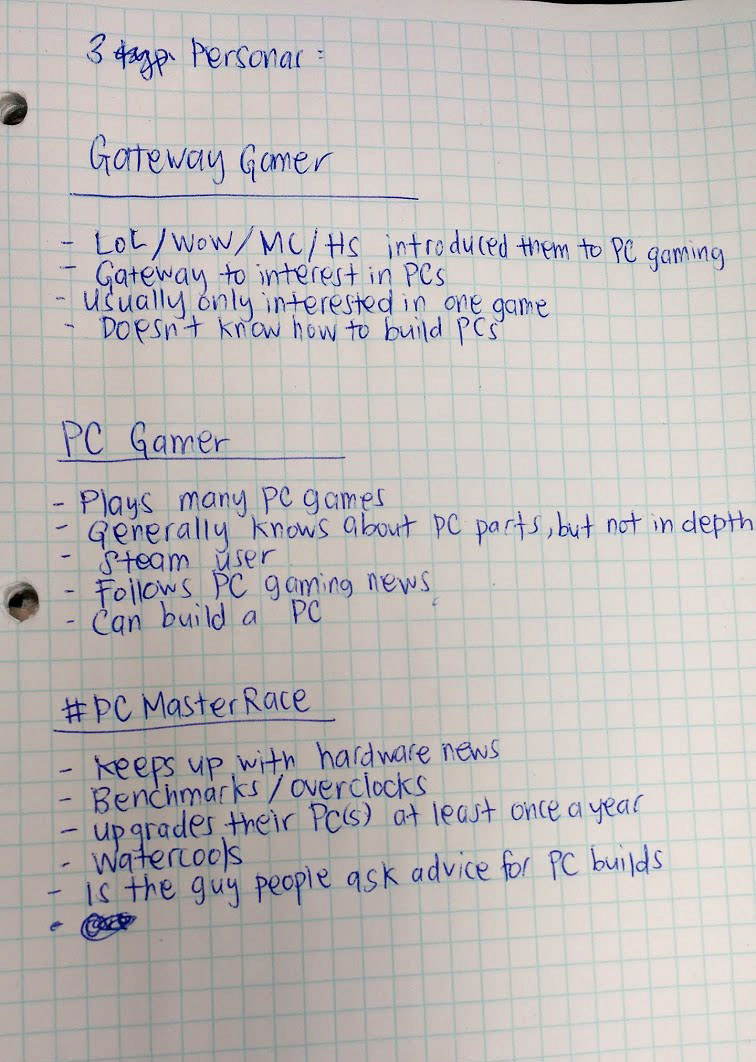 3 Personas:
Gateway Gamer
- LoL/WoW/MC/HS introduced them to PC gaming
- Gateway to interest in PCs
- Usually only interested in one game
- Doesn't know how to build PCs
PC Gamer
- Plays many PC games
- Generally knows about PC parts, but not in depth
- Steam user
- Follows PC gaming news
- Can build a PC
#PCMasterRace
- Keeps up with hardware news
- Benchmarks/overclocks
- upgrades their PC(s) at least once a year
- Watercools
- Is the guy people ask advice for PC builds
-